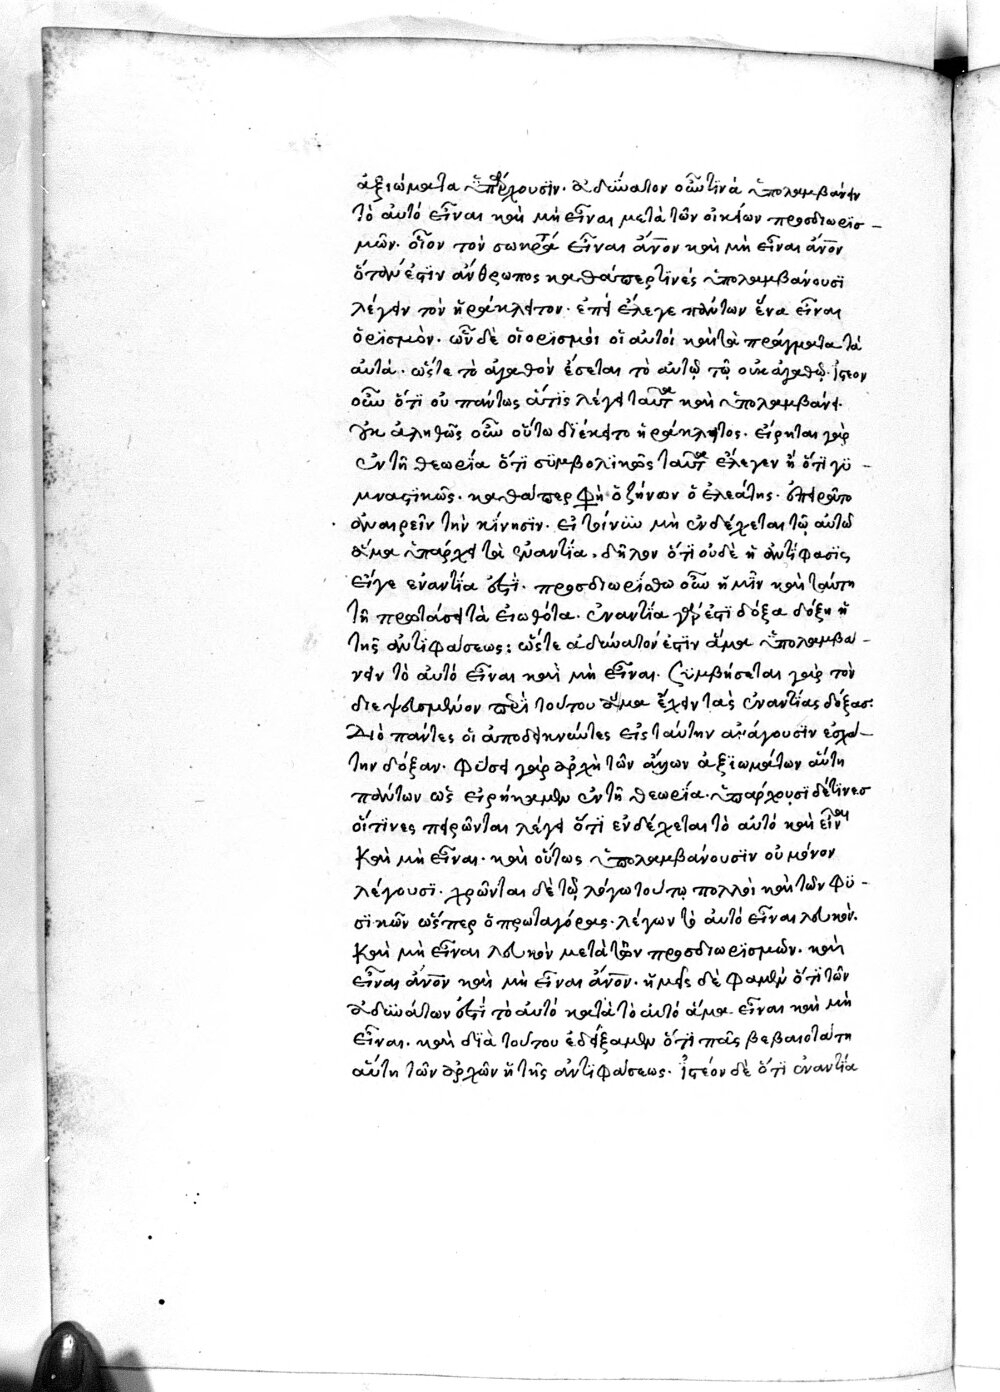 ἀξιώματα ὑπάρχουσιν· ἀδύνατον οὖν τινὰ ὑπολαμβάνειν
τὸ αὐτὸ εἶναι καὶ μὴ εἶναι μετὰ τῶν οἰκείων προσδιορισ-
μῶν· οἷον τὸν σωκράτη εἶναι ἄνον καὶ μὴ εἶναι ἄνον
ὅταν ἐστὶν ἄνθρωπος καθάπερ τινές ὑπολαμβάνουσι
λέγειν τὸν ἡράκλειτον· ἐπεὶ ἔλεγε πάντων ἕνα εἶναι
ὁρισμὸν· ὧν δὲ οἱ ὁρισμοὶ οἱ αὐτοὶ καὶ τὰ πράγματα τὰ
αὐτά· ὥστε τὸ ἀγαθὸν ἔσεται τὸ αὐτῷ τῷ οὐκ ἀγαθῷ· ἰστέον
οὖν ὅτι οὐ πάντως ἅ τις λέγει ταῦτα καὶ ὑπολαμβάνει·
οὐκ ἀληθῶς οὖν οὕτω διέκειτο ἡράκλειτος· εἴρηται γὰρ
ἐν τῇ θεωρία ὅτι συμβολικῶς ταῦτα ἔλεγεν ἢ ὅτι γυ-
μναστικῶς· καθάπερ φη ὁ ζήνων ὁ ἐλεάτης· ἐπειρᾶτο
ἀναιρεῖν τὴν κίνησιν· εἰ τοίνυν μὴ ἐνδέχεται τῷ αὐτῷ
ἅμα ὑπάρχειν τὰ ἐναντία, δῆλον ὅτι οὐδὲ ἡ ἀντίφασις
εἴγε ἐναντία ἐστί· προσδιωρίσθω οὖν ἡμῖν καὶ ταύτη
τῇ προτάσει τὰ εἰωθότα· ἐναντία γάρ ἐστι δόξα δόξη ἡ
τῆς ἀντιφάσεως: ὥστε ἀδύνατόν ἐστιν ἅμα ὑπολαμβά-
νειν τὸ αὐτὸ εἶναι καὶ μὴ εἶναι· συμβήσεται γὰρ τὸν
διεψευσμένον περὶ τούτου ἅμα ἔχειν τὰς ἐναντίας δόξας·
Διὸ πάντες οἱ ἀποδεικνύντες εἰς ταύτην ἀνάγουσιν ἐσχά-
την δόξαν· φύσει γὰρ ἀρχὴ τῶν ἄλλων ἀξιωμάτων αὕτη
πάντων ὡς εἰρήκαμεν ἐν τῇ θεωρία· ὑπάρχουσι δέ τινες
οἵτινες πειρῶνται λέγει ὅτι ἐνδέχεται τὸ αὐτὸ καὶ εἶναι
καὶ μὴ εἶναι· καὶ οὕτως ὑπολαμβάνουσιν οὐ μόνον
λέγουσι· χρῶνται δὲ τῷ λόγω τούτω πολλοὶ καὶ τῶν φυ-
σικῶν ὥσπερ ὁ πρωταγόρας· λέγων τὸ αὐτὸ εἶναι λευκὸν·
καὶ μὴ εἶναι λευκὸν μετὰ τῶν προσδιορισμῶν· καὶ
εἶναι ἄνον καὶ μὴ εἶναι ἄνον· ἡμεῖς δὲ φαμὲν ὅτι τῶν
ἀδυνάτων ἐστὶ τὸ αὐτὸ κατὰ τὸ αὐτὸ ἅμα εἶναι καὶ μὴ
εἶναι· καὶ διὰ τούτου ἐδείξαμεν ὅτι πᾶς βεβαιοτάτη
αὕτη τῶν ἀρχῶν ἡ τῆς ἀντιφάσεως· ἰστέον δὲ ὅτι ἐναντία